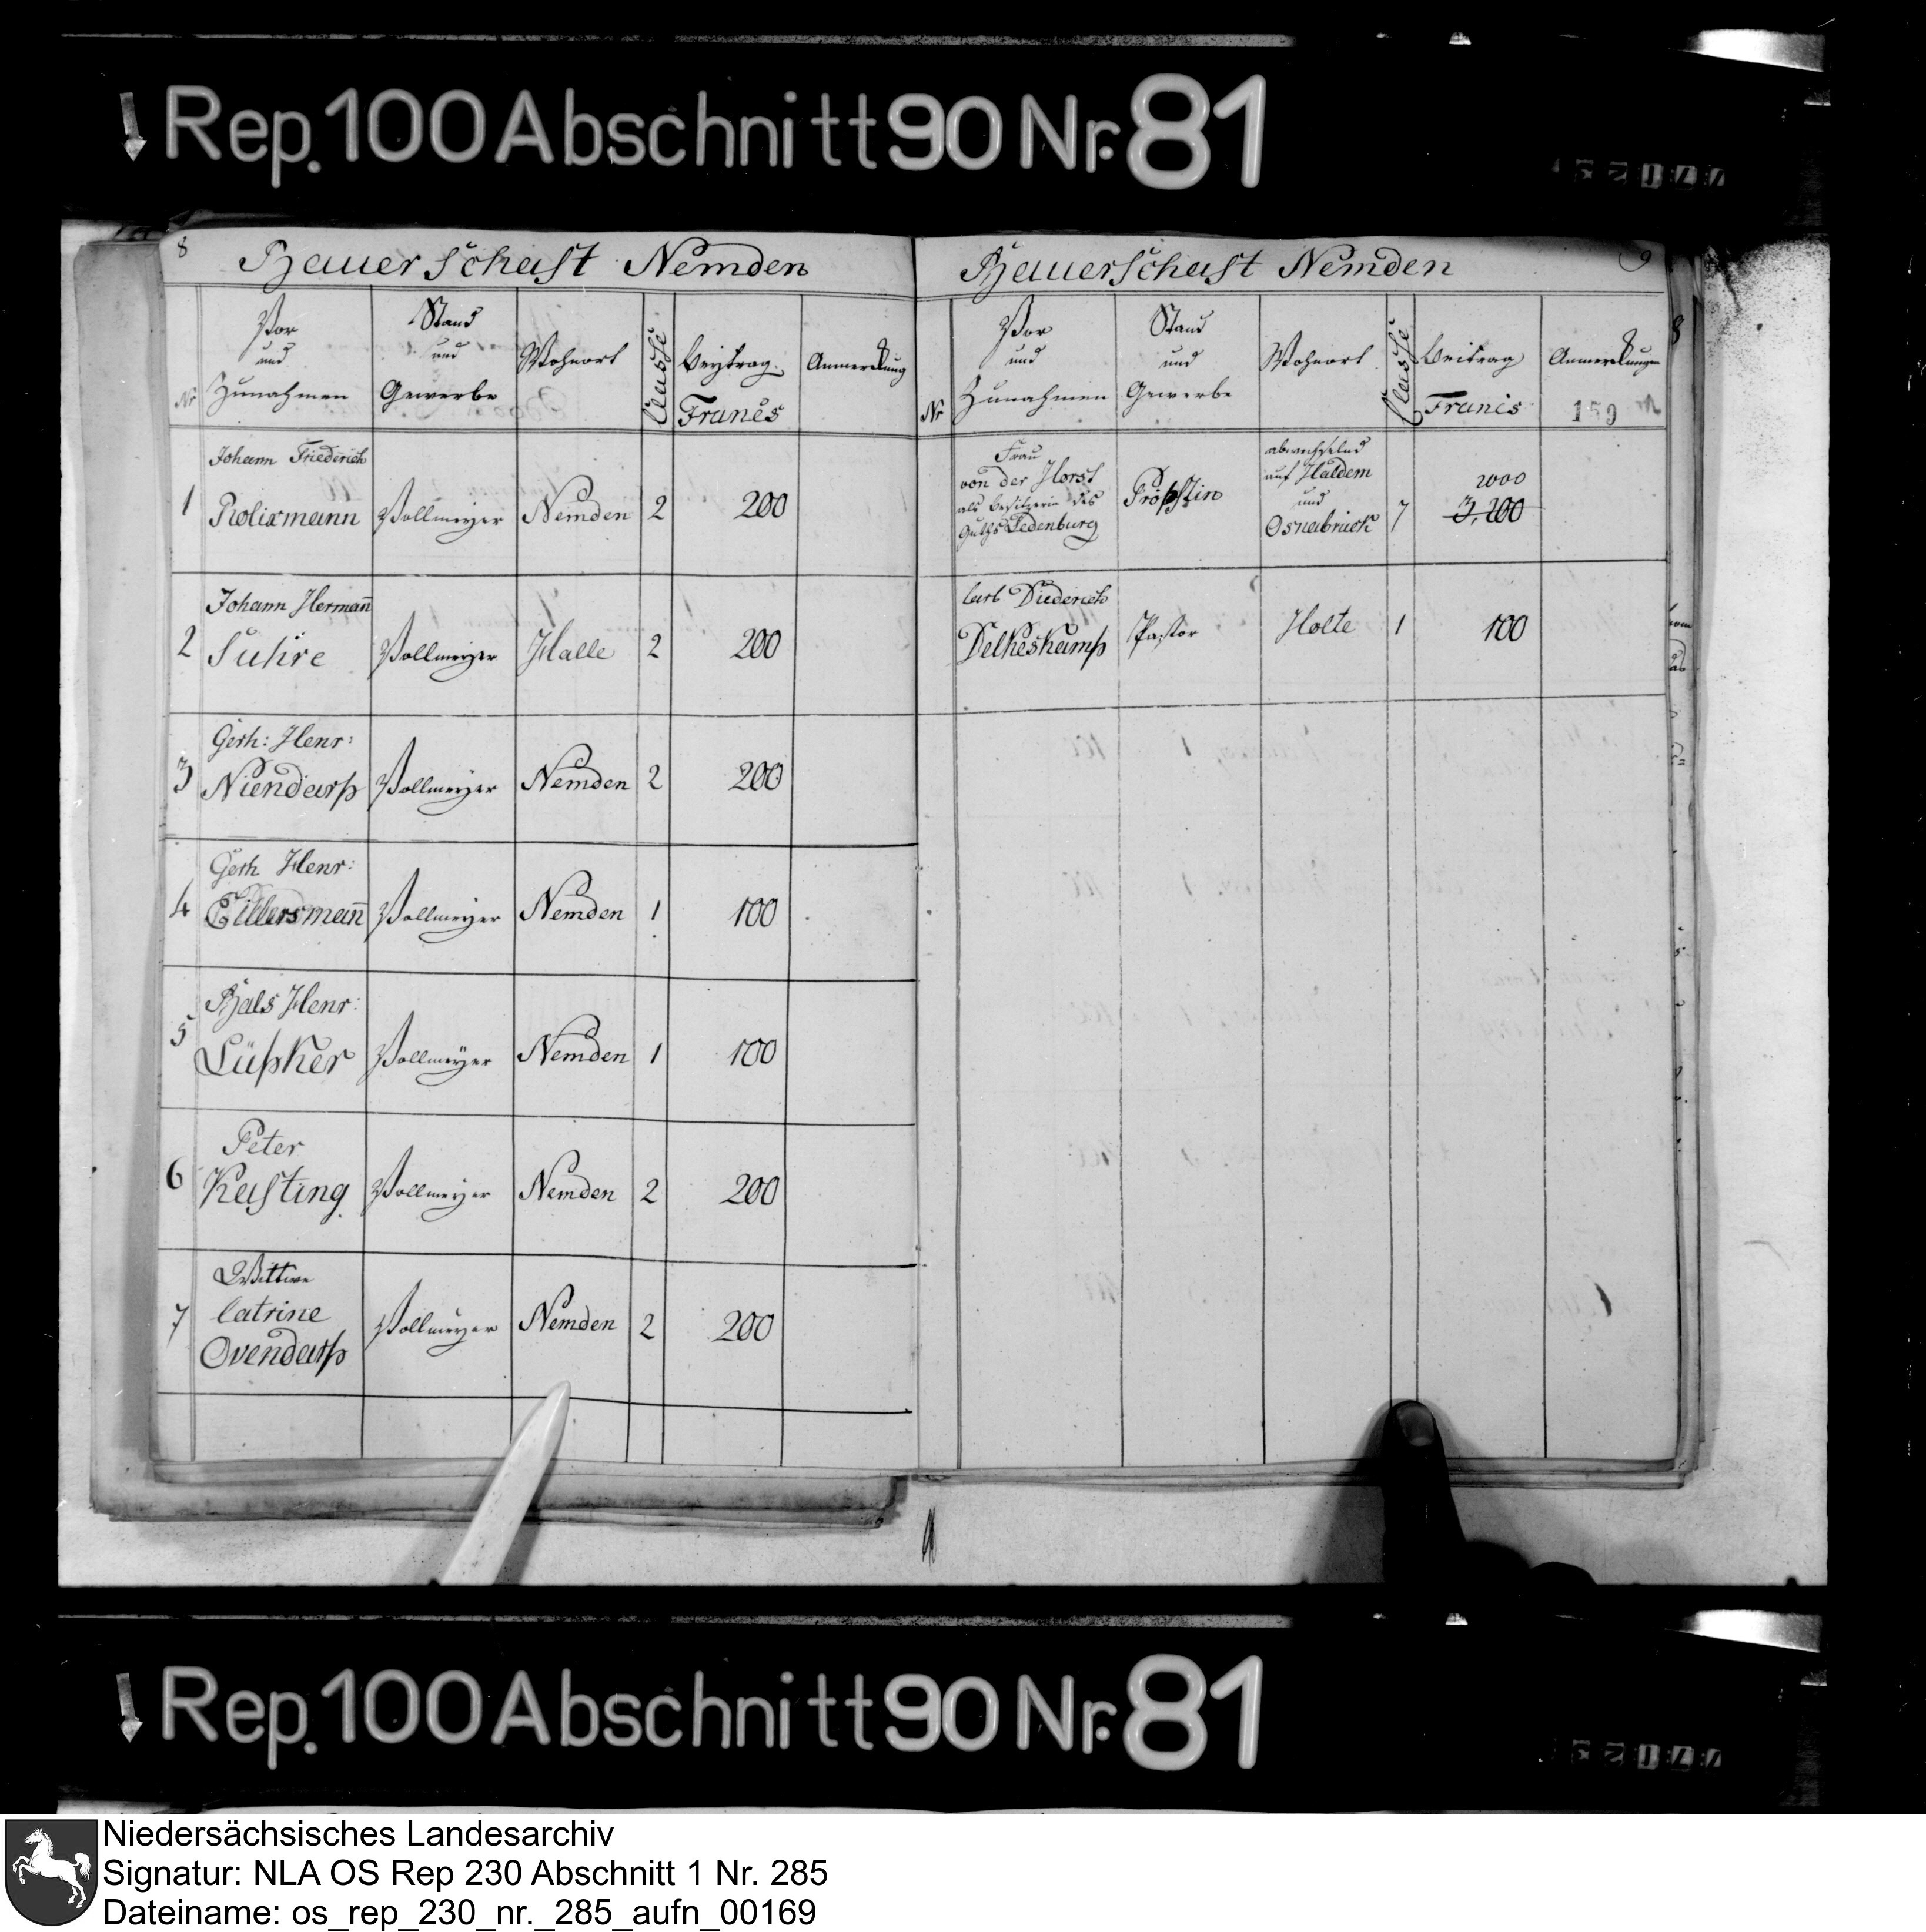 Rep. 100 Abschnitt 90 Nr. 81
8
Bauerschaft Nemden
Nr
Vor und Zunahmen
Stand und Gewerbe
Wohnort
Classe
Beytrag. Francs
Anmerckung
1 Johann Friederich
Rolixmann Vollmeyer Nemden 2 200
2 Johann Herman̄
Suhre Vollmeyer Halle 2 200
3 Gerh: Henr:
Niendarp Vollmeyer Nemden 2 200
4 Gerh Henr:
Eillersman̄ Vollmeyer Nemden 1 100
5 Bals Henr:
Lüpker Vollmeyer Nemden 1 100
6 Peter
Kasting Vollmeyer Nemden 2 200
7 Wittwe
Catrine
Ovendarp Vollmeyer Nemden 2 200
Bauerschaft Nemden
9
Nr
Vor und Zunahmen
Stand und Gewerbe
Wohnort
Classe
Beitrag Francs
Anmerckungen
159
Frau
von der Horst
als Besitzerin des
Guths Ledenburg
Pröpstin
abwechselnd
auf Haldem
und
Osnabrück
7
2000
3,200
Carl Diederich
Delkeskamp Pastor Holte 1 100
Rep. 100 Abschnitt 90 Nr. 81
Niedersächsisches Landesarchiv
Signatur: NLA OS Rep 230 Abschnitt 1 Nr. 285
Dateiname: os_rep_230_nr._285_aufn_00169